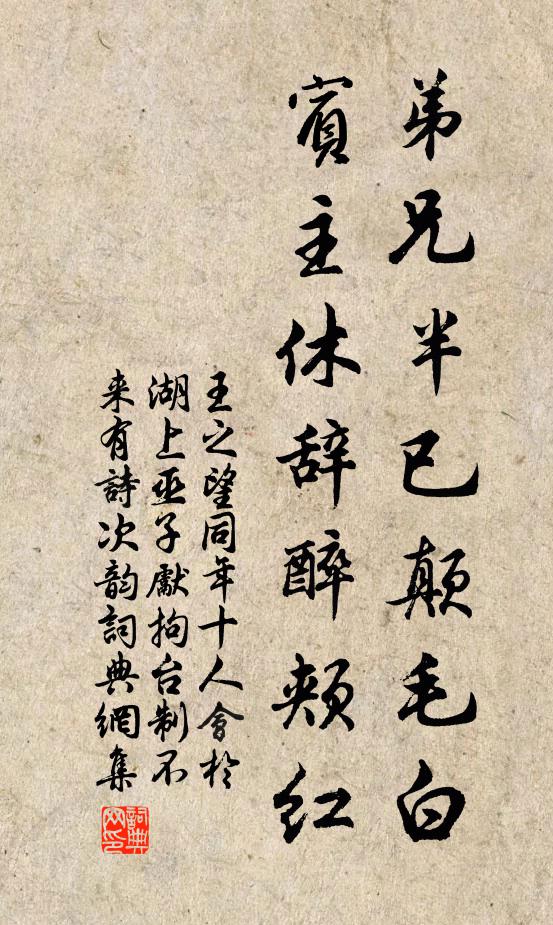 弟兄半已颠毛白
賓主休辞醉颊红
王之望同年十人會於
湖上巫子獻拘台制不
来有詩次韵詞典網集
詞典
网印